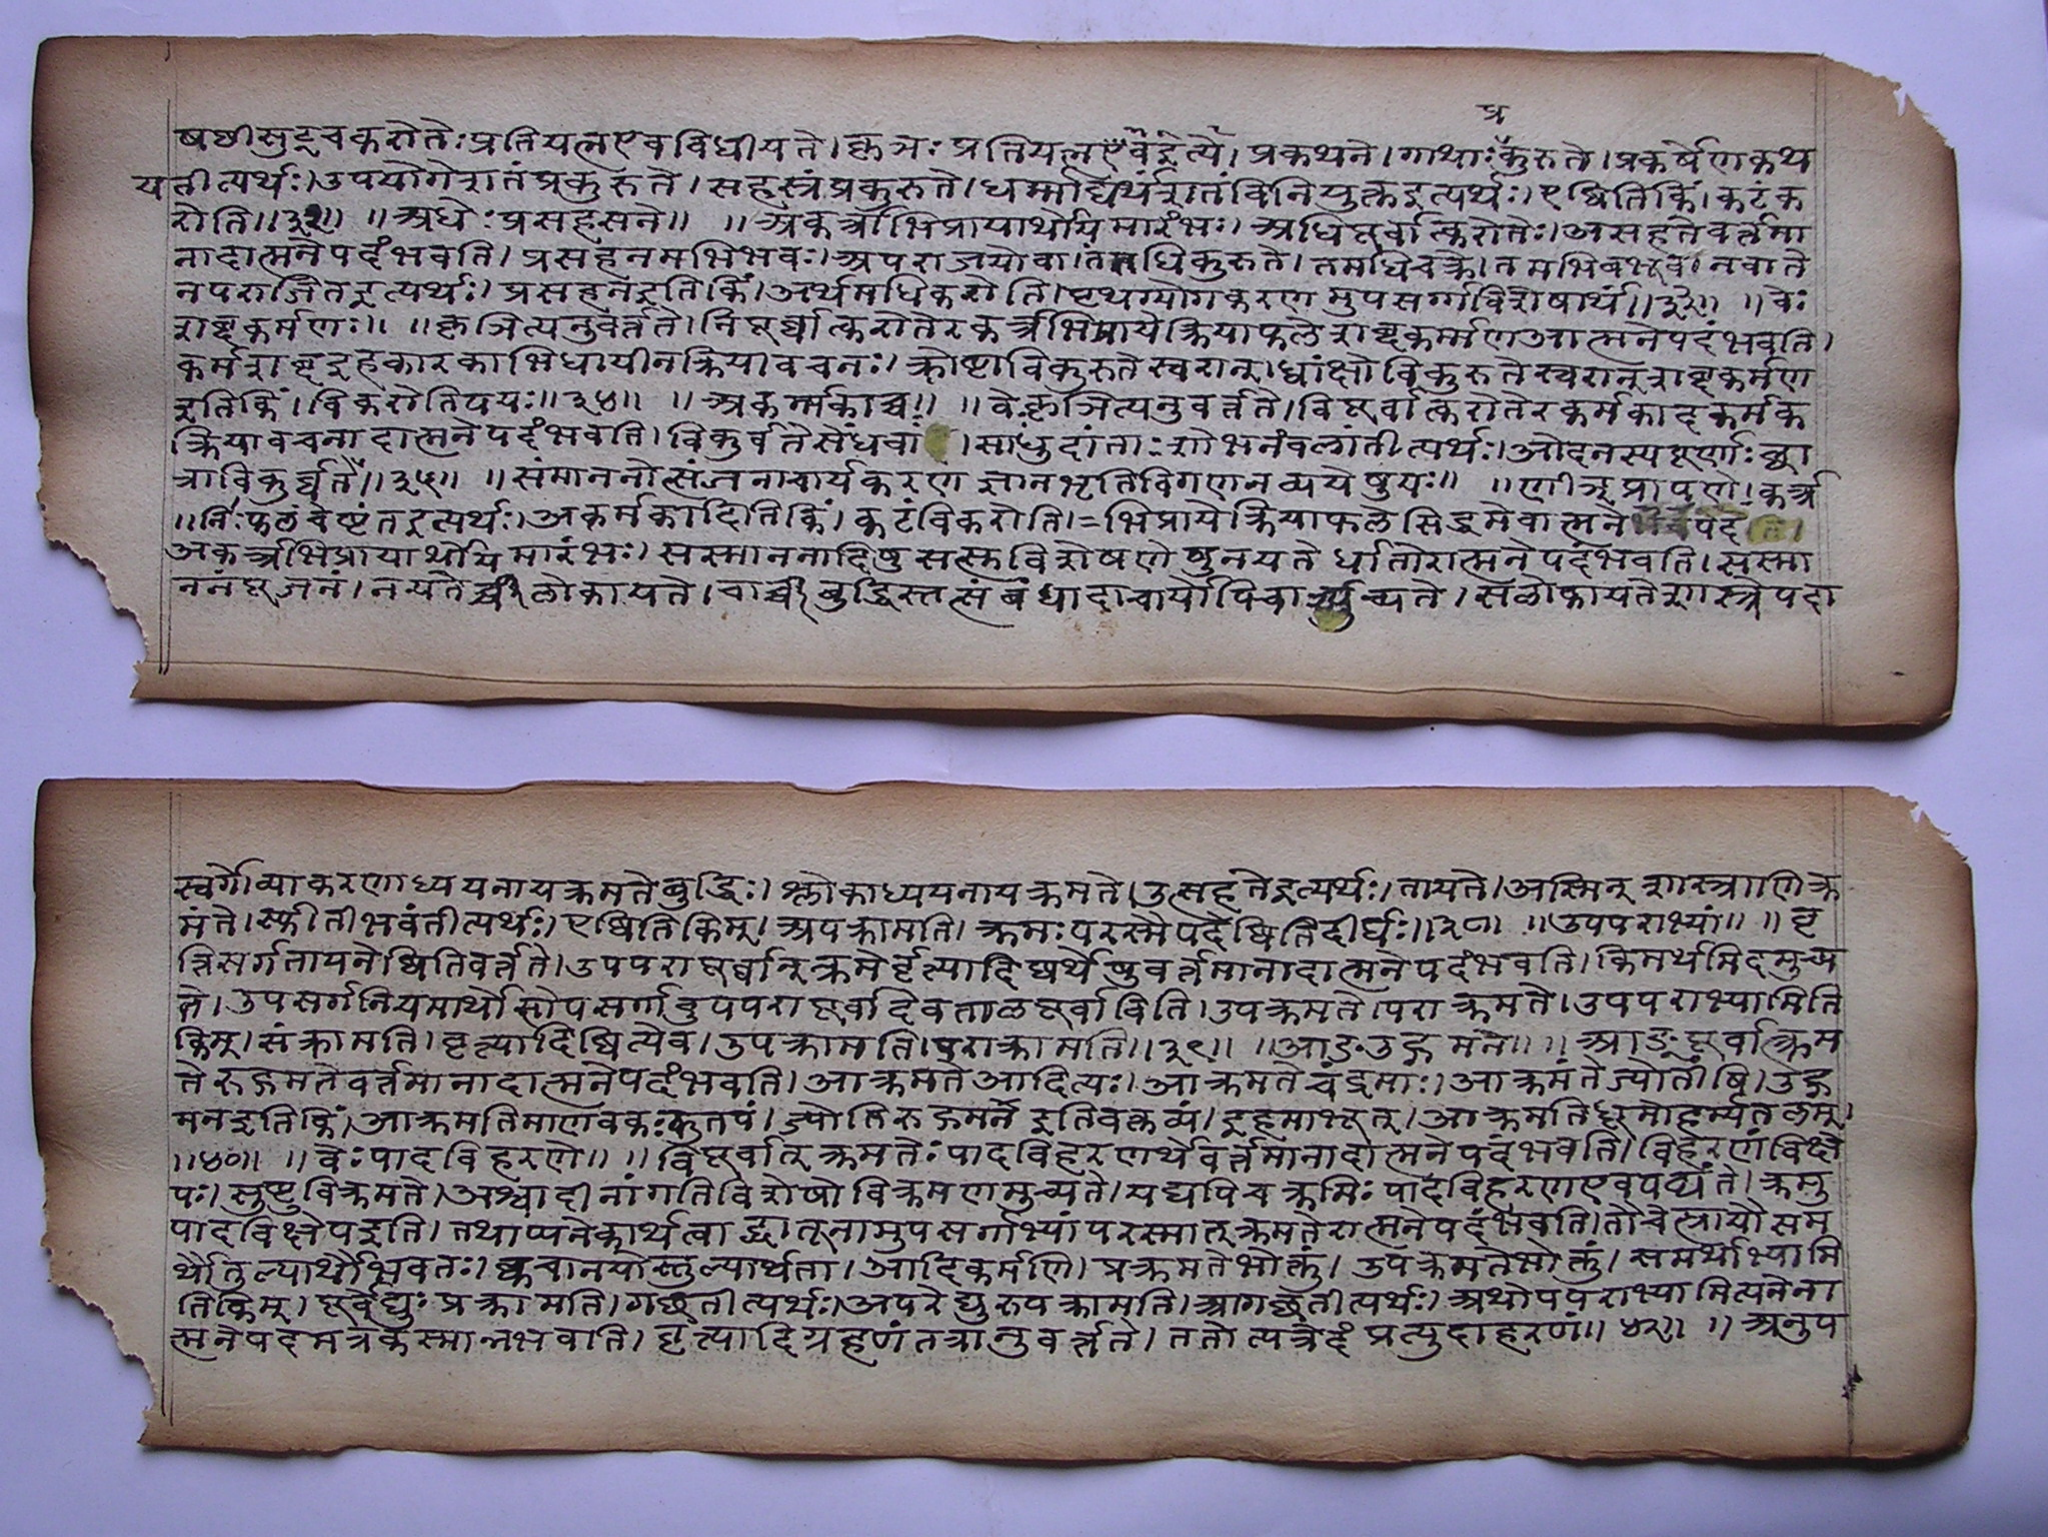 प्र
षष्ठीसुट्चकरोतेः प्रतियत्नएवविधीयते। कृञः प्रतियत्नएवेइत्ये। प्रकथने। गाथाः कुरुते। प्रकर्षेणकथ
यतीत्यर्थः। उपयोगेशतंप्रकुरुते। सहस्रंप्रकुरुते। धर्मार्थंशतंविनियुक्तइत्यर्थः। एष्वितिकिं। कटंक
रोति॥३२॥ ॥अधेः प्रसहसने॥ ॥अकर्त्रभिप्रायार्थोयमारंभः। अधिपूर्वात्करोतेः। असहतेवर्त्तमा
नादात्मनेपदंभवति। प्रसहनमभिभवः। अपराजयोवा। तंधिकुरुते। तमधिचक्रे। तमभिबभूव। नवाते
नपराजितइत्यर्थः। प्रसहनेइतिकिं। अर्थमधिकरोति। पृथग्योगकरणमुपसर्गविशेषार्थं॥३३॥ ॥वेः
शब्दकर्मणः॥ ॥कृञित्यनुवर्त्तते। विपूर्वात्करोतेरकर्त्रभिप्रायेक्रियाफलेशब्दकर्म्मणआत्मनेपदंभवति।
कर्मशब्दइहकारकाभिधायीनक्रियावचनः। क्रोष्टाविकुरुतेस्वरान्। ध्वांक्षोविकुरुतेस्वरान्शब्दकर्मण
इतिकिं। विकरोतिपयः॥३४॥ ॥अकर्मकाच्च॥ ॥वेःकृञित्यनुवर्त्तते। विपूर्वात्करोतेरकर्मकादकर्मक
क्रियावचनादात्मनेपदंभवति। विकुर्वतेसेंधवां। साधुदांताः शोभनंवलांतीत्यर्थः। ओदनस्यपूर्णाः छा
त्राविकुर्व्वते॥३५॥ ॥संमाननोत्संजनाचार्यकरणज्ञानभृतिविगणनव्ययेषुयः॥ ॥णीञ्प्रापणे। कर्त्र
॥निःफलंचेष्टंतइत्यर्थः। अकर्मकादितिकिं। कटंविकरोति।=भिप्रायेक्रियाफलेसिद्धमेवात्मनेपद
अकर्त्रभिप्रायार्थोयमारंभः। सस्माननादिषुसत्सुविशेषणेषुनयतेर्धातोरात्मनेपदंभवति। सस्मा
ननंपूजनं। नयतेचार्वीलोकायते। चार्वीबुद्धिस्तत्संबंधादाचार्योपिचार्व्युच्यते। सलोकायतेशास्त्रेपदा
स्वर्गोव्याकरणाध्ययनायक्रमतेबुद्धिः। श्लोकाध्ययनायक्रमते। उत्सहतेइत्यर्थः। तायते। अस्मिन्शास्त्राणिक्र
मंते। स्फीतीभवंतीत्यर्थः। एष्वितिकिम्। अपक्रामति। क्रमः परस्मैपदेष्वितिदीर्घः॥३८॥ ॥उपपराभ्यां॥ ॥वृ
त्तिसर्गतायनेष्वितिवर्त्तते। उपपरापूर्वान्क्रमेर्वृत्यादिष्वर्थेषुवर्त्तमानादात्मनेपदंभवति। किमर्थमिदमुच्य
ते। उपसर्गनियमार्थोसोपसर्गाबुपपरापूर्वादेवतालपूर्वाविति। उपक्रमते। पराक्रमते। उपपराभ्यामिति
किम्। संक्रामति। वृत्त्यादिष्वित्येव। उपक्रामति। पुराक्रामति॥३९॥ ॥आङउद्गमने॥ ॥आङ्पूर्वात्क्रम
तेरुद्गमतेवर्त्तमानादात्मनेपदंभवति। आक्रमतेआदित्यः। आक्रमतेचंद्रमाः। आक्रमंतेज्योतींषि। उद्ग
मनइतिकिं। आक्रमतिमाणवकःकुतपं। ज्योतिरुद्गमने इतिवक्तव्यं। इहमाभूत्। आक्रमतिधूमोहर्म्यतलम्।
॥४०॥ ॥वेः पादविहरणे॥ ॥विपूर्वात्क्रमतेः पादविहरणार्थेवर्त्तमानादात्मनेपदंभवति। विहरणंविक्षे
पः। सुष्टुविक्रमते। अश्वादीनांगतिविशेषोविक्रमणमुच्यते। यद्यपिचक्रमिः पादविहरणएवपठ्यंते। क्रमु
पादविक्षेपइति। तथाप्यनेकार्थत्वाद्धातूनामुपसर्गाभ्यांपरस्मात्क्रमतेरात्मनेपदंभवति। तौचेत्प्रायौसम
र्थौतुल्यार्थौभवतः। क्वचानयोस्तुल्यार्थता। आदिकर्मणि। प्रक्रमतेभोक्तुं। उपक्रमतेभोक्तुं। समर्थाभ्यामि
तिकिम्। पूर्वेद्युः प्रक्रामति। गछतीत्यर्थः। अपरेद्युरुपक्रामति। आगछतीत्यर्थः। अथोपपराभ्यामित्यनेना
त्मनेपदमत्रकस्मान्नभवति। वृत्त्यादिग्रहणंतत्रानुवर्त्तते। ततोत्यत्रेदंप्रत्युदाहरणं॥४२॥ ॥अनुप